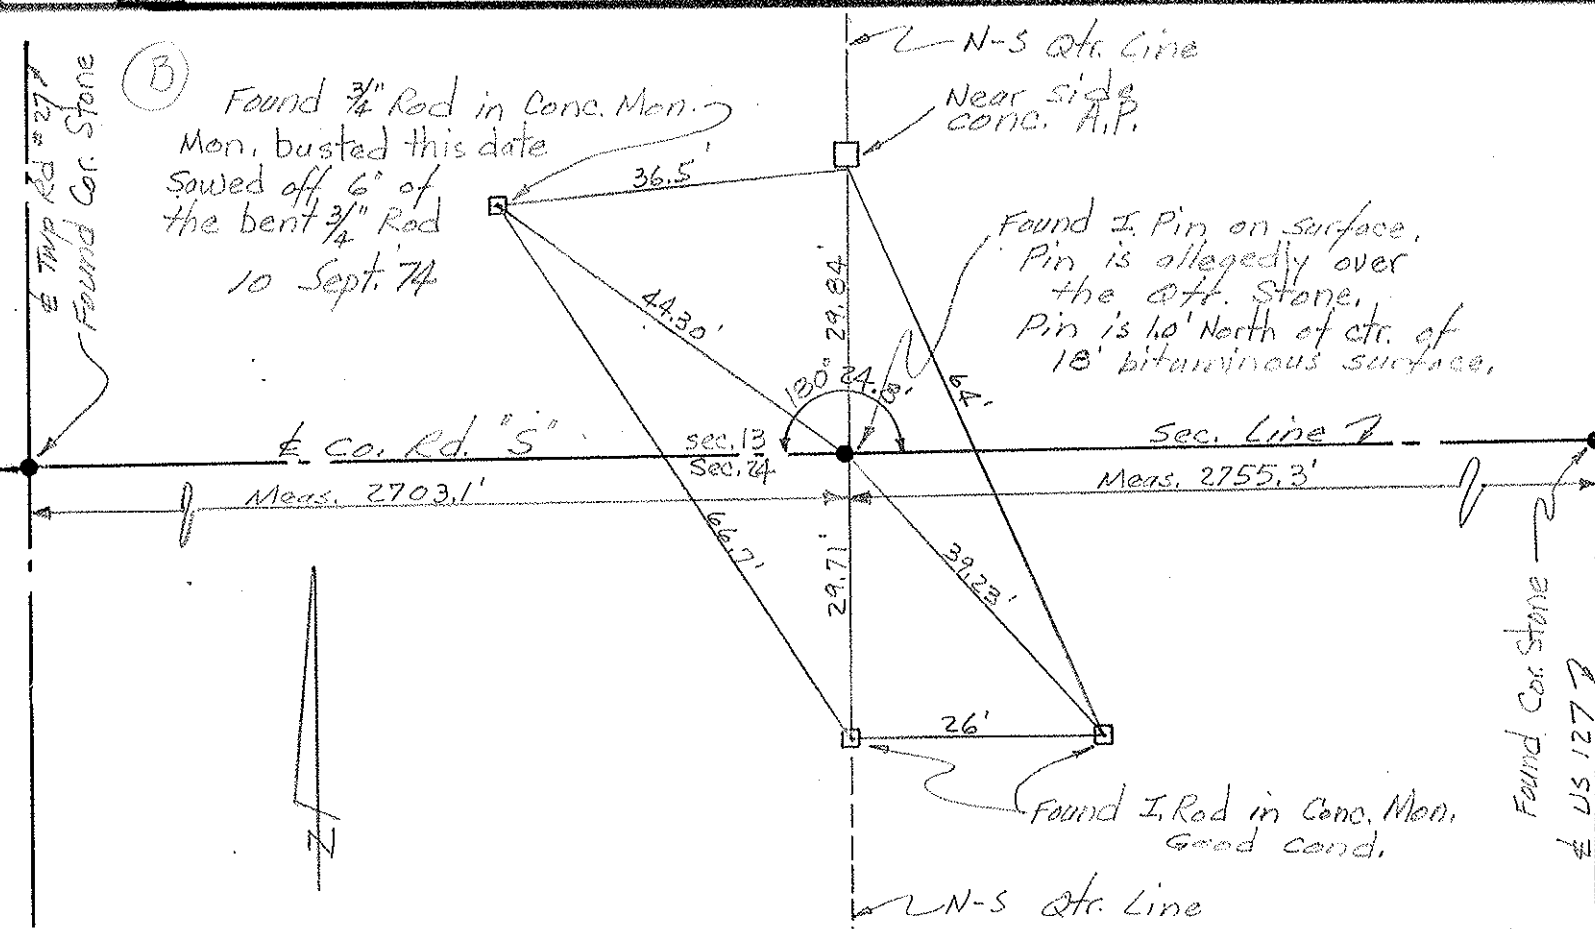 B
℄ Twp Rd #27
Found Cor. Stone
Found 3/4" Rod in Conc. Mon.
Mon. busted this date
Sawed off 6" of
the bent 3/4" Rod
10 Sept. '74
N-S Qtr. Line
Near side
conc. A.P.
36.5'
Found I. Pin on surface.
Pin is allegedly over
the Qtr. Stone.
Pin is 1.0' North of ctr. of
18' bituminous surface.
44.30'
29.84'
64.'
180° 24.8'
℄ Co. Rd. "S"
sec. 13
Sec. 24
Sec. Line
Meas. 2703.1'
Meas. 2755.3'
66.7'
29.71'
39.23'
26'
Found Cor. Stone
℄ US 127
Found I. Rod in Conc. Mon.
Good cond.
N
N-S Qtr. Line